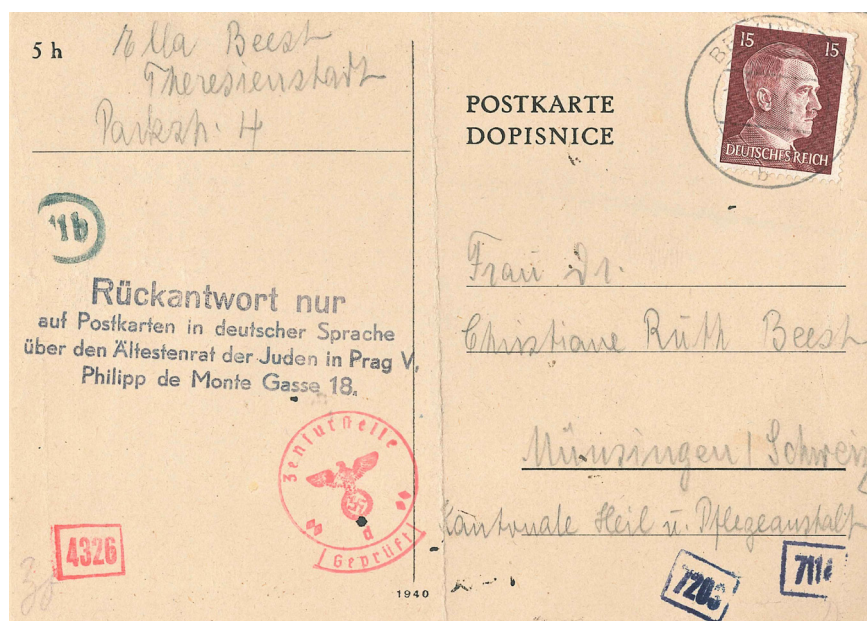 5 h
Ella Beest
Theresienstadt
Parkstr. 4
11b
Rückantwort nur
auf Postkarten in deutscher Sprache
über den Ältestenrat der Juden in Prag V,
Philipp de Monte Gasse 18.
Zensurstelle
d
Geprüft
4326
1940
POSTKARTE
DOPISNICE
15 15
DEUTSCHES REICH
b
Frau Dr.
Christiane Ruth Beest
Münsingen / Schweiz
Kantonale Heil u. Pflegeanstalt